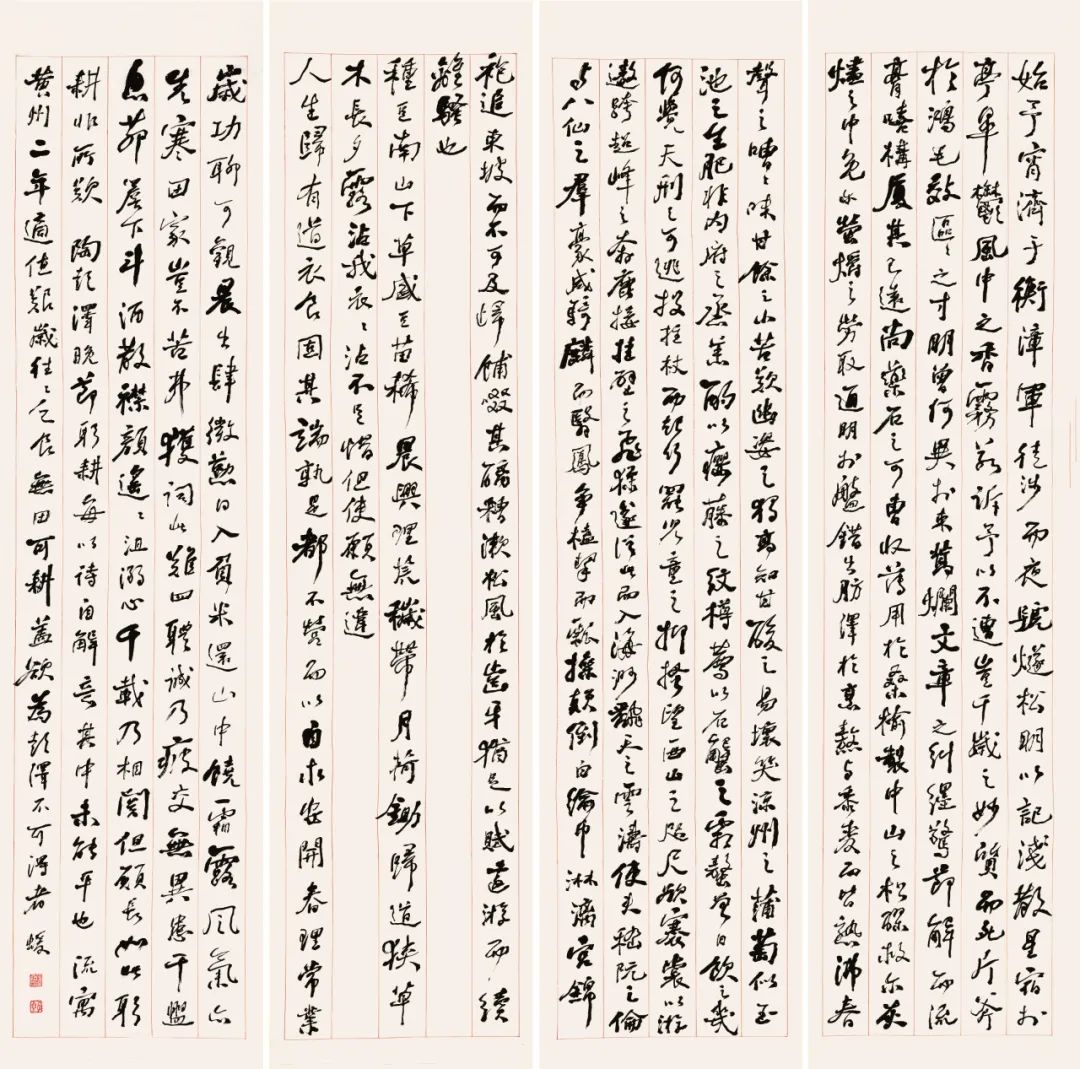 始予宵濟于衡漳軍徒涉而夜號燧松明以記淺散星宿於
亭皋鬱風中之香霧若訴予以不遭豈千歲之妙質而死斤斧
於鴻毛效區〻之寸明曾何異於束蒿爛文章之糾纆驚節解而流
膏嘻構廈其已遠尚藥石之可曹收薄用於桑榆製中山之松醪救爾灰
燼之中免爾螢爝之勞取通明於盤錯出肪澤於烹熬與黍麥而皆熟沸舂
聲之嘈〻味甘餘之小苦歎幽姿之獨高知甘酸之易壞笑涼州之蒲萄似玉
池之生肥非內府之蒸羔酌以癭藤之紋樽薦以石蟹之霜螯曾日飲之幾
何覺天刑之可逃投拄杖而起行罷兒童之抑搔望西山之咫尺欲褰裳以游
遨跨超峰之奔鹿接挂壁之飛猱遂從此而入海渺翻天之雲濤使夫嵇阮之倫
與八仙之羣豪或騎麟而翳鳳爭榼挈而瓢操顛倒白綸巾淋漓宮錦
袍追東坡而不可及歸餔歠其醨糟漱松風於齒牙猶足以賦遠游而續
離騷也
種豆南山下草盛豆苗稀晨興理荒穢帶月荷鋤歸道狹草
木長夕露沾我衣〻沾不足惜但使願無違
人生歸有道衣食固其端孰是都不營而以自求安開春理常業
歲功聊可觀晨出肆微勤日入負米還山中饒霜露風氣亦
先寒田家豈不苦弗獲詞此難四體誠乃疲交無異患干盥
息茆簷下斗酒散襟顏遙〻沮溺心千載乃相關但願長如此躬
耕非所歎 陶彭澤晚節躬耕每以詩自解意其中未能平也 流寓
黃州二年適值艱歲往〻乏食無田可耕蓋欲為彭澤不可得者 峻